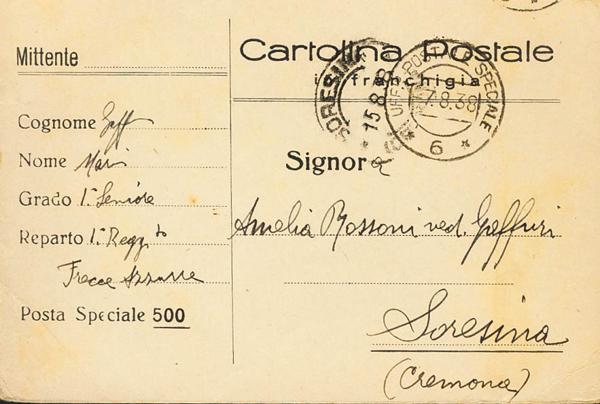 Mittente
Cartolina Postale
in franchigia
SORESINA
15.8.38
UFFICIO POSTALE SPECIALE
7.8.38
* 6 *
Cognome Geff
Nome Mari
Grado 1º Seniore
Reparto 1º Reggto
Frecce Azzurre
Posta Speciale 500
Signora
Amelia Rossoni ved. Geffuri
Soresina
(Cremona)